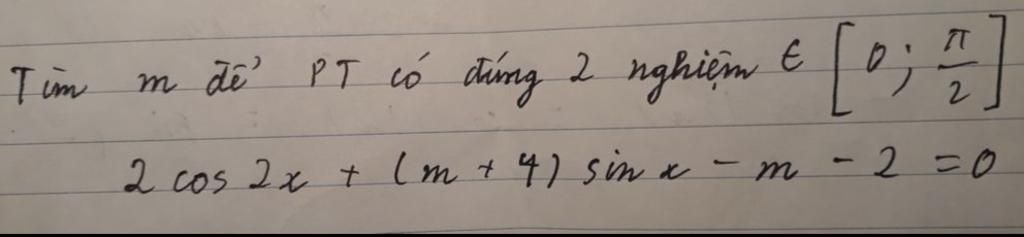 Tìm m để PT có đúng 2 nghiệm ∈ [0; π/2]
2 cos 2x + (m + 4) sin x - m - 2 = 0